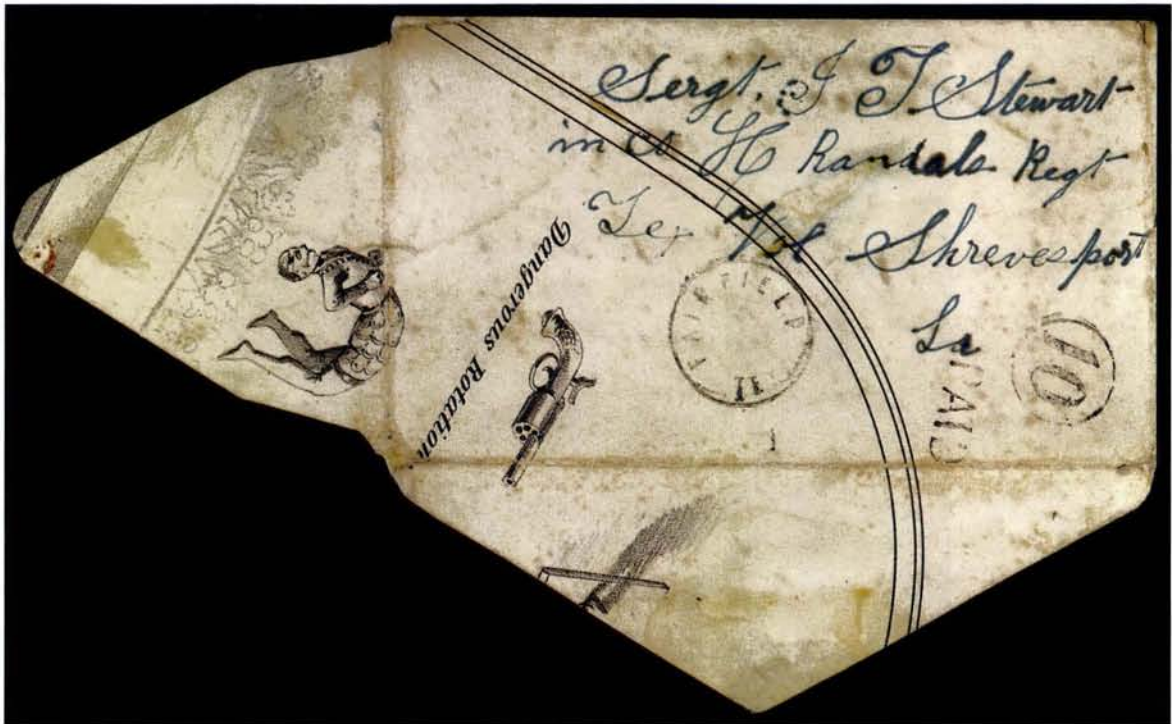 Sergt. J T Stewart
in Co H Randals Regt
Tex Shrevesport
La
FAIRFIELD
11
PAID
10
Dangerous Rotation